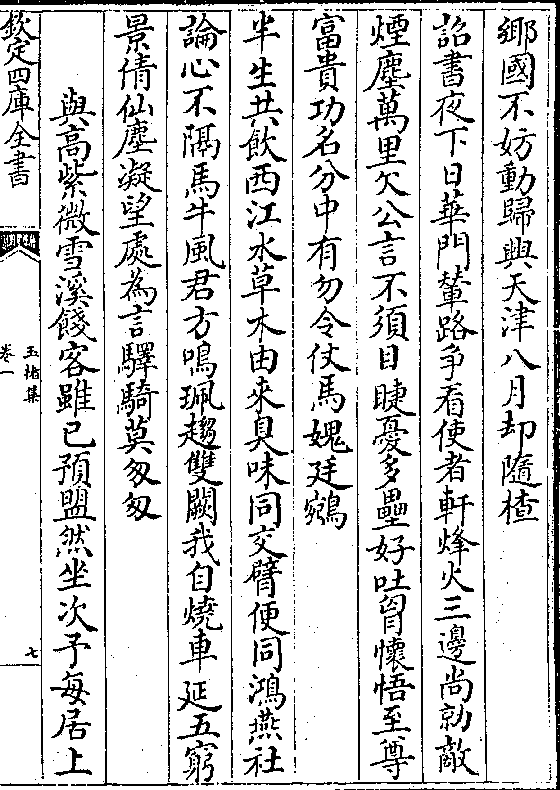 鄉國不妨動歸興天津八月却隨楂
詔書夜下日華門輦路争看使者軒烽火三邊尚勍敵
煙塵萬里欠公言不須目睫憂多壘好吐胷懷悟至尊
富貴功名分中有勿令仗馬媿廷鵷
半生共飲西江水草木由來臭味同交臂便同鴻燕社
論心不隔馬牛風君方鳴珮趨雙闕我自燒車延五窮
景倩仙塵凝望處為言驛騎莫匆匆
與高紫微雪溪餞客雖已預盟然坐次予每居上
欽定四庫全書
玉楮集
卷一
七